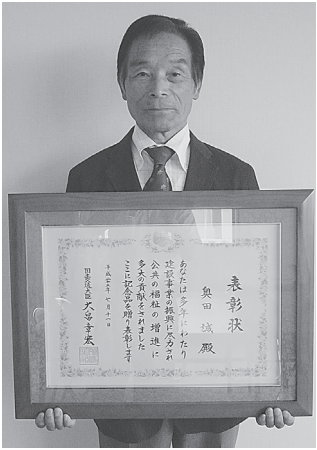 表彰状
奥田 城 殿
あなたは多年にわたり
建設事業の振興に尽力され
公共の福祉の増進に
多大の貢献をされました
ここに記念品を贈り表彰します
平成廿三年 七月十一日
国土交通大臣 大畠章宏